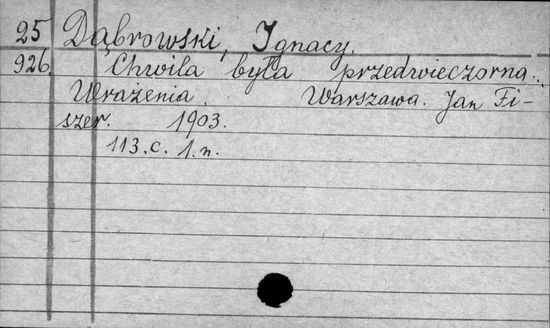 25 Dąbrowski, Ignacy.
926. Chwila była przedwieczorna.
Wrażenia. Warszawa. Jan Fi-
szer. 1903.
113. c. 1. n.